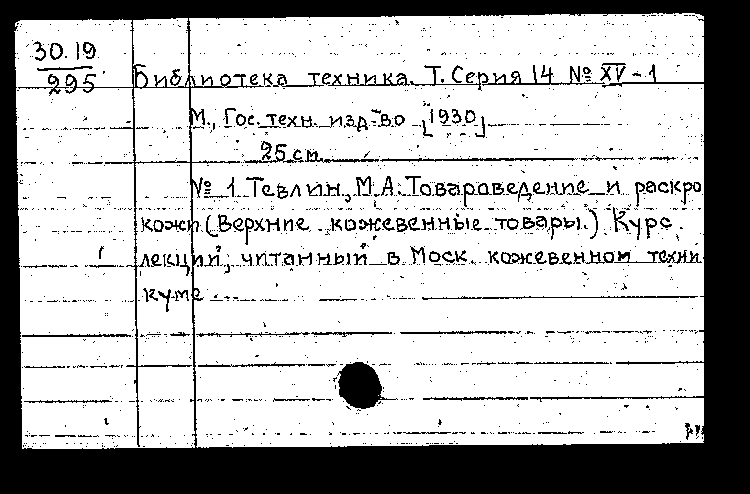 30.19
295
Библиотека техника. Т. Серия 14 № XV-1
М., Гос. техн. изд-во [1930]
25 см.
№ 1 Тевлин, М.А. Товароведение и раскро
кожи (Верхние кожевенные товары.) Курс
лекций, читанный в Моск. кожевенном техни
куме